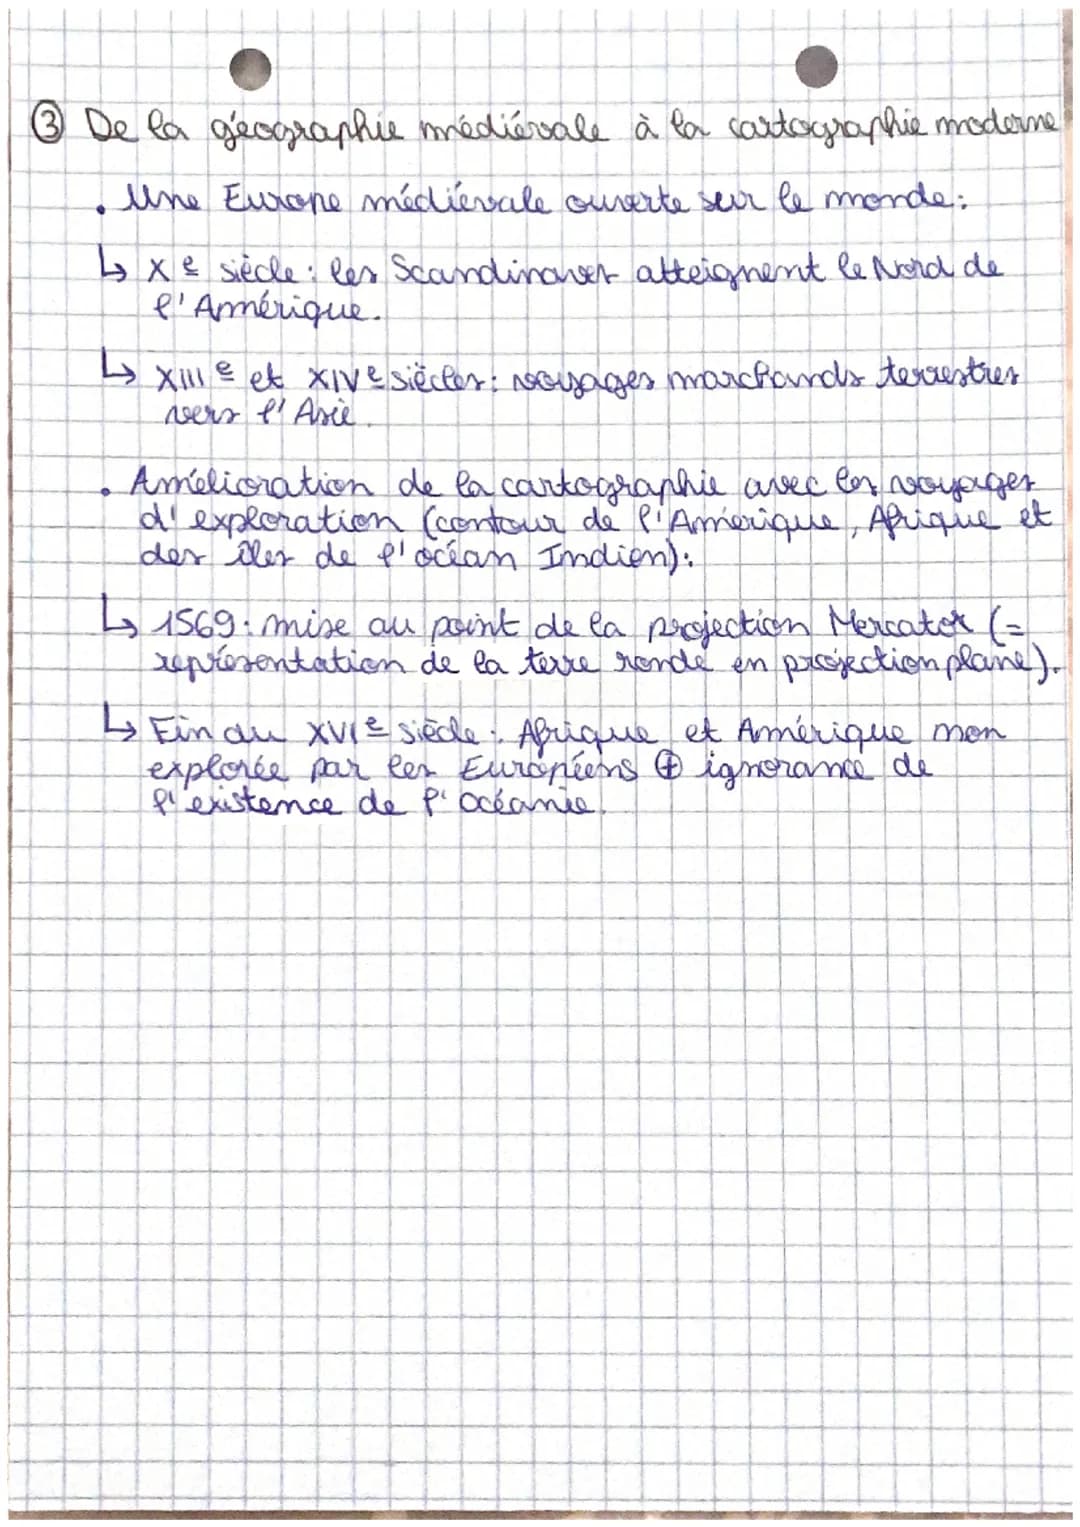 ③ De la géographie médiévale à la cartographie moderne
• Une Europe médiévale ouverte sur le monde:
↳ Xe siècle: les Scandinaves atteignent le Nord de
l'Amérique.
↳ XIIIe et XIVe siècles: voyages marchands terrestres
vers l'Asie.
• Amélioration de la cartographie avec les voyages
d'exploration (contour de l'Amérique, Afrique et
des îles de l'océan Indien):
↳ 1569: mise au point de la projection Mercator (=
représentation de la terre ronde en projection plane).
↳ Fin du XVIe siècle: Afrique et Amérique non
explorée par les Européens ⊕ ignorance de
l'existence de l'Océanie.